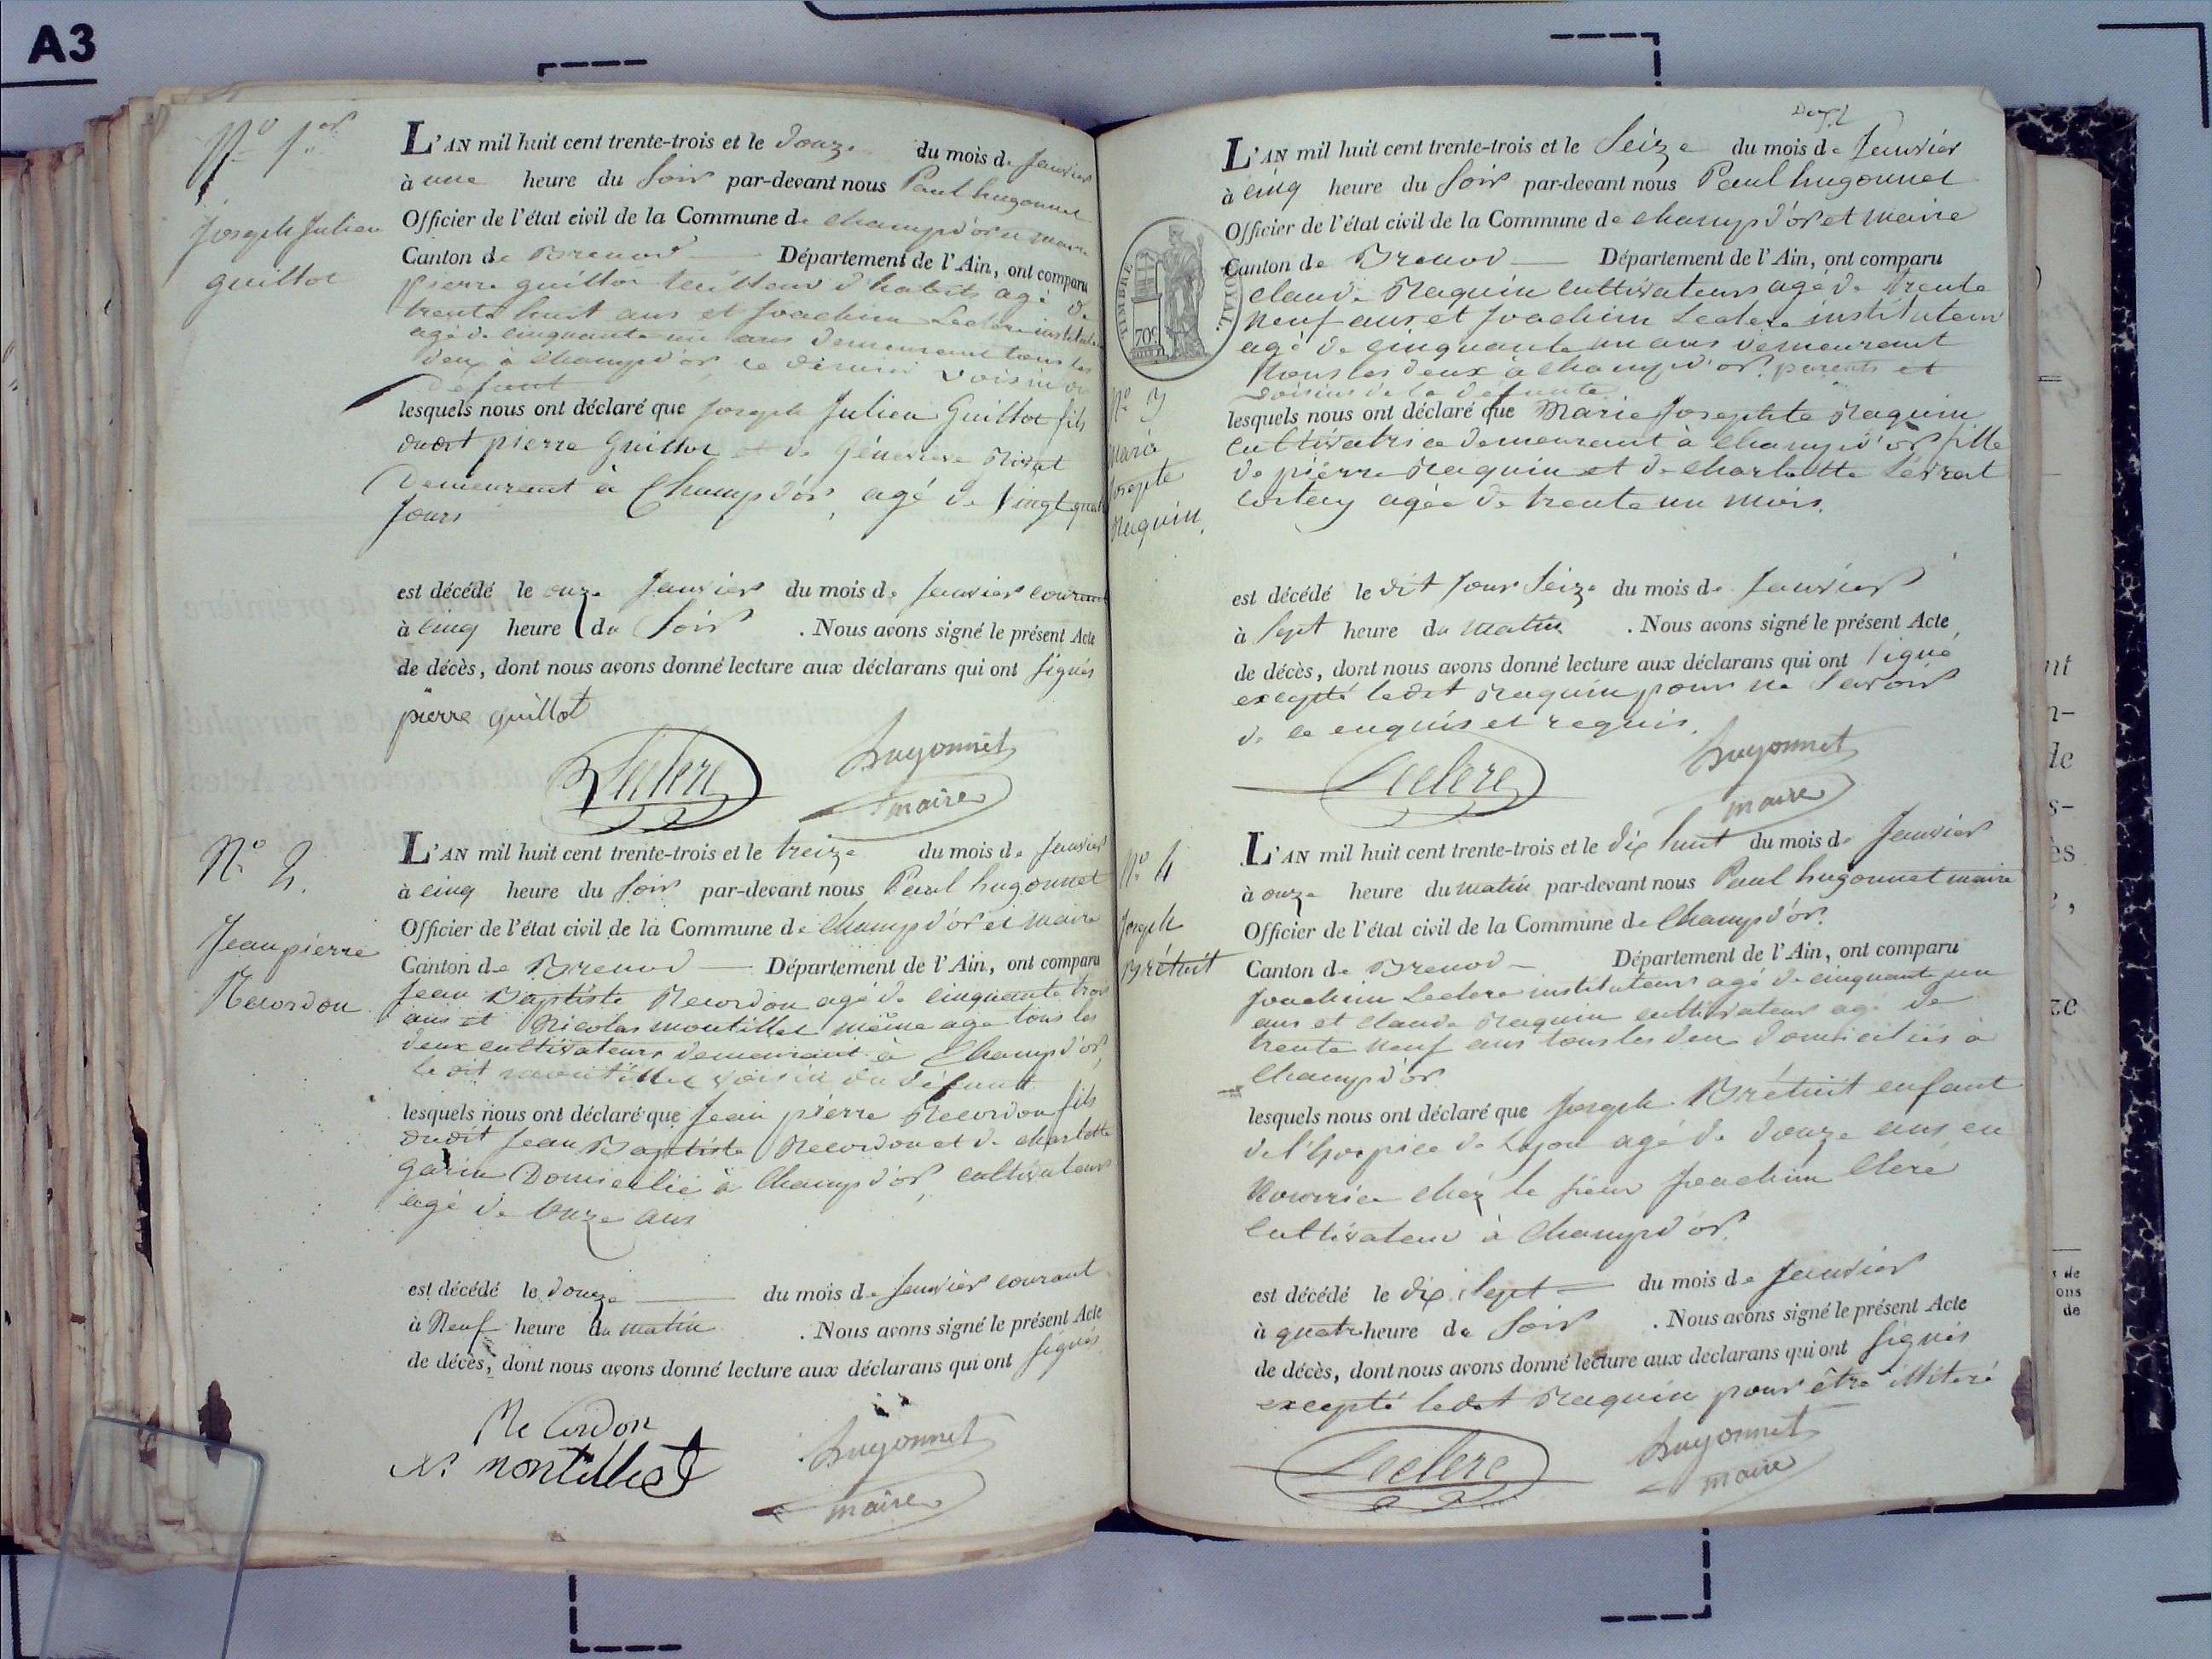 A3
N° 1er
Joseph Julien
guillot
L'AN mil huit cent trente-trois et le douze du mois de Janvier
à une heure du Soir par-devant nous Paul hugonnet
Officier de l'état civil de la Commune de Champd'or et maire
Canton de Brenod Département de l'Ain, ont comparu
pierre guillot tailleur d'habits agé de
trente huit ans et Joachim Leclerc instituteur
agé de cinquante un ans demeurant tous les
deux à Champd'or ce dernier voisin du
défunt
lesquels nous ont déclaré que Joseph Julien Guillot fils
dudit pierre Guillot et de Généviève Rivat
Demeurant à Champd'or, agé de Vingt quatre
Jours
est décédé le onze Janvier du mois de Janvier courant
à cinq heure du Soir . Nous avons signé le présent Acte
de décès, dont nous avons donné lecture aux déclarans qui ont signés
pierre guillot
Leclerc
hugonnet
maire
N° 2.
Jean pierre
Recordon
L'AN mil huit cent trente-trois et le treize du mois de Janvier
à cinq heure du Soir par-devant nous Paul hugonnet
Officier de l'état civil de la Commune de Champd'or et maire
Canton de Brenod Département de l'Ain, ont comparu
Jean Baptiste Recordon agé de cinquante trois
ans et Nicolas montillet même age tous les
deux cultivateurs demeurant à Champd'or,
le dit montillet voisin du défunt
lesquels nous ont déclaré que Jean pierre Recordon fils
dudit Jean Baptiste Recordon et de charlotte
garin Domicilié à Champd'or, cultivateur
agé de Onze ans
est décédé le douze du mois de Janvier courant
à Neuf heure du matin . Nous avons signé le présent Acte
de décès, dont nous avons donné lecture aux déclarans qui ont signés
Re Cordon
N. montillet
hugonnet
maire
TIMBRE ROYAL.
70c
N° 3
Marie
Josepte
Raquin.
L'AN mil huit cent trente-trois et le Seize du mois de Janvier
à cinq heure du Soir par-devant nous Paul hugonnet
Officier de l'état civil de la Commune de Champd'or et maire
Canton de Brenod Département de l'Ain, ont comparu
claude Raquin cultivateur agé de trente
neuf ans et Joachim Leclerc instituteur
agé de cinquante un ans demeurant
tous les deux à Champd'or. parents et
voisins de la défunte
lesquels nous ont déclaré que Marie Josephte Raquin
Cultivatrice demeurant à Champd'or fille
de pierre Raquin et de charlotte Levrat
agée de trente un mois.
est décédé le dit Jour Seize du mois de Janvier
à Sept heure du matin . Nous avons signé le présent Acte
de décès, dont nous avons donné lecture aux déclarans qui ont signé
excepté ledit Raquin pour ne Savoir
de ce enquis et requis.
Leclerc
hugonnet
maire
N° 4
Joseph
Brétuit
L'AN mil huit cent trente-trois et le dix huit du mois de Janvier
à onze heure du matin par-devant nous Paul hugonnet maire
Officier de l'état civil de la Commune de Champd'or.
Canton de Brenod Département de l'Ain, ont comparu
Joachim Leclerc instituteur agé de cinquante un
ans et claude Raquin cultivateur agé de
trente neuf ans tous les deux domiciliés à
Champd'or
lesquels nous ont déclaré que Joseph Brétuit enfant
de l'hospice de Lyon agé de douze ans, en
Nourrice chez le sieur Joachim Clerc
Cultivateur à Champd'or.
est décédé le dix Sept du mois de Janvier
à quatre heure du Soir . Nous avons signé le présent Acte
de décès, dont nous avons donné lecture aux déclarans qui ont signés
excepté ledit Raquin pour être illitéré
Leclerc
hugonnet
maire